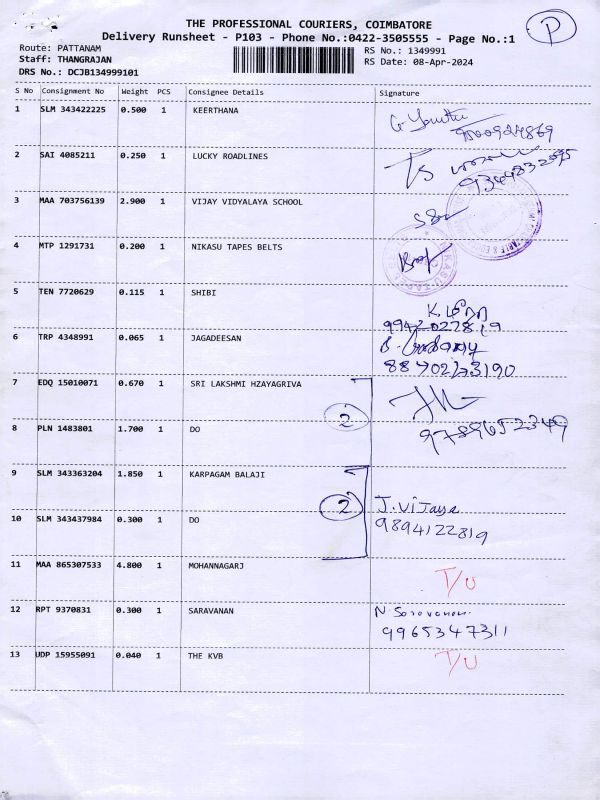 THE PROFESSIONAL COURIERS, COIMBATORE
Delivery Runsheet - P103 - Phone No.:0422-3505555 - Page No.:1
P
Route: PATTANAM
RS No.: 1349991
Staff: THANGRAJAN
RS Date: 08-Apr-2024
DRS No.: DCJB134999101
S No Consignment No Weight PCS Consignee Details Signature
1 SLM 343422225 0.500 1 KEERTHANA
2 SAI 4085211 0.250 1 LUCKY ROADLINES
3 MAA 703756139 2.900 1 VIJAY VIDYALAYA SCHOOL
4 MTP 1291731 0.200 1 NIKASU TAPES BELTS
5 TEN 7720629 0.115 1 SHIBI
6 TRP 4348991 0.065 1 JAGADEESAN
8870273190
7 EDQ 15010071 0.670 1 SRI LAKSHMI HZAYAGRIVA
2
8 PLN 1483801 1.700 1 DO
9789652349
9 SLM 343363204 1.850 1 KARPAGAM BALAJI
2 J. Vijaya
10 SLM 343437984 0.300 1 DO 9894122819
11 MAA 865307533 4.800 1 MOHANNAGARJ T/U
12 RPT 9370831 0.300 1 SARAVANAN N. Saravanan
9965347311
13 UDP 15955091 0.040 1 THE KVB T/U